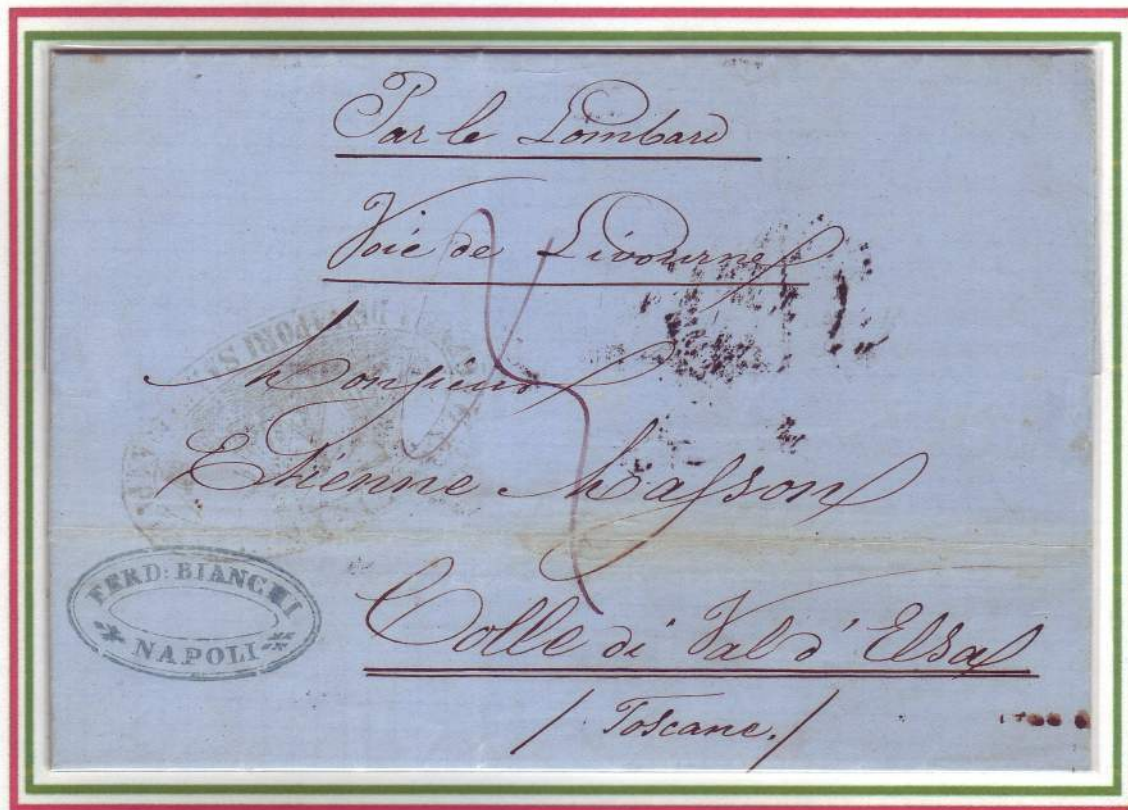 Par le Lombard
Voie de Livourne
Monsieur
Etienne Masson
Colle di Val d'Elsa
/ Toscane. /
FERD: BIANCHI
NAPOLI